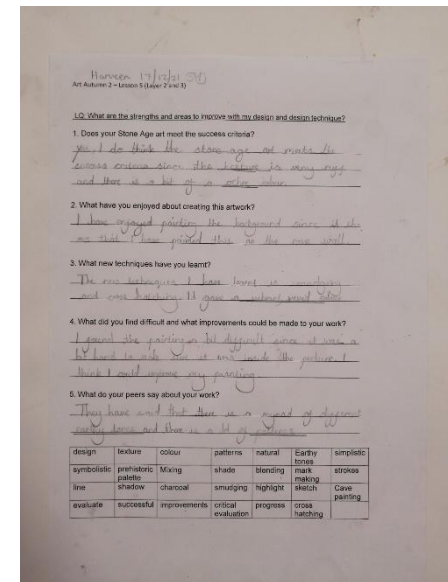 Harveen 17/12/21
Art Autumn 2 – Lesson 5 (Layer 2 and 3)
LQ: What are the strengths and areas to improve with my design and design technique?
1. Does your Stone Age art meet the success criteria?
yes, I do think the stone age art meets the
success criteria since the texture is very nice
and there is a bit of a colour.
2. What have you enjoyed about creating this artwork?
I have enjoyed painting the background since it
me think I have painted this on the cave wall
3. What new techniques have you learnt?
The new techniques I have learnt is smudging
and cross hatching. It gave a
4. What did you find difficult and what improvements could be made to your work?
I found the painting a bit difficult since it was a
bit hard to make sure it was inside the picture. I
think I could improve my painting.
5. What do your peers say about your work?
They have said that there is a myriad of different
earthy tones and there is a lot of patterns.
design texture colour patterns natural Earthy tones simplistic
symbolistic prehistoric palette Mixing shade blending mark making strokes
line shadow charcoal smudging highlight sketch Cave painting
evaluate successful improvements critical evaluation progress cross hatching